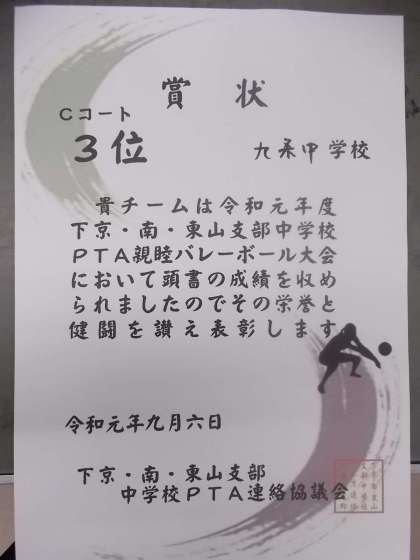 賞状
Cコート
3位
九条中学校
貴チームは令和元年度
下京・南・東山支部中学校
PTA親睦バレーボール大会
において頭書の成績を収め
られましたのでその栄誉と
健闘を讃え表彰します
令和元年九月六日
下京・南・東山支部
中学校PTA連絡協議会